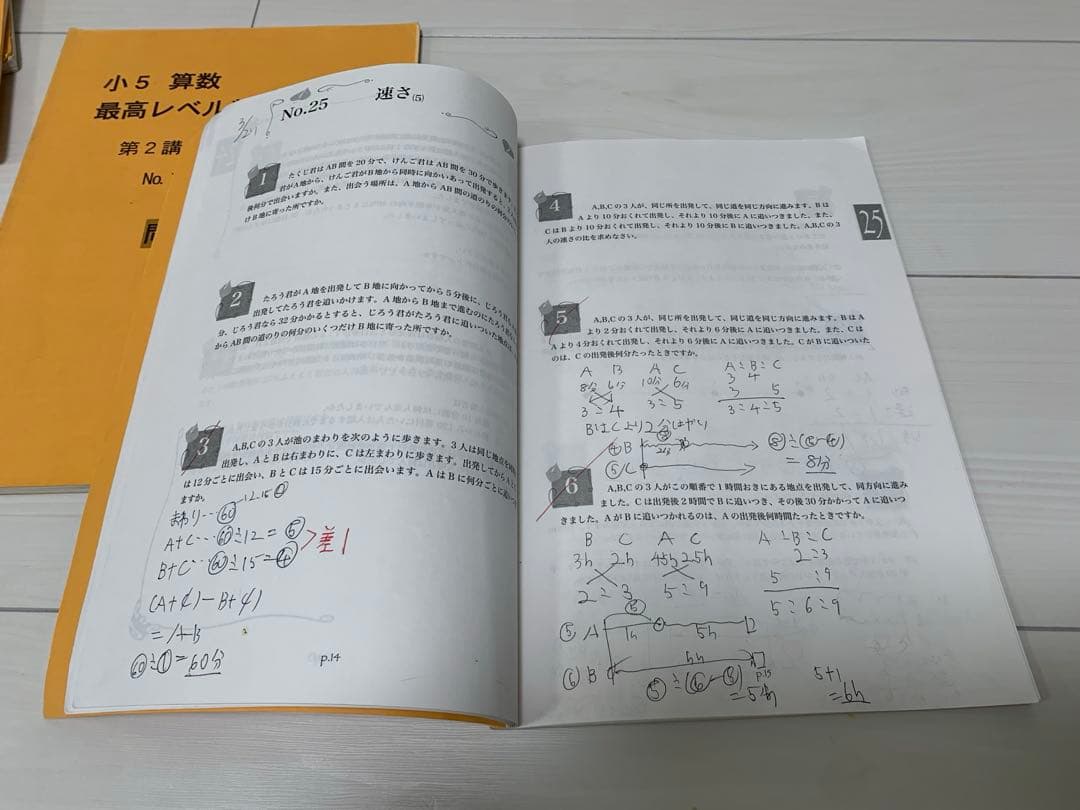 小5 算数
最高レベル
第2講
No.
No.25 速さ(5)
1 たくじ君はAB間を20分で、けんご君はAB間を30分で歩きます
君がA地から、けんご君がB地から同時に向かいあって出発すると、
後何分で出会いますか。また、出会う場所は、A地からAB間の道のりの何分の
けB地に寄った所ですか。
2 たろう君がA地を出発してB地に向かってから5分後に、じろう君も
出発してたろう君を追いかけます。A地からB地まで進むのにたろう君なら
分、じろう君なら32分かかるとすると、じろう君がたろう君に追いついた地点は、
からAB間の道のりの何分のいくつだけB地に寄った所ですか。
3 A,B,Cの3人が池のまわりを次のように歩きます。3人は同じ地点を同時
出発し、AとBは右まわりに、Cは左まわりに歩きます。出発してからAと
は12分ごとに出会い、BとCは15分ごとに出会います。AはBに何分ごとに追い
ますか。
まわり…60
A+C…60÷12=⑤
B+C…60÷15=④ >差1
(A+C)-B+C)
=A-B
60÷①=60分
p.14
25
4 A,B,Cの3人が、同じ所を出発して、同じ道を同じ方向に進みます。Bは
Aより10分おくれて出発し、それより10分後にAに追いつきました。また、
CはBより10分おくれて出発し、それより10分後にBに追いつきました。A,B,Cの3
人の速さの比を求めなさい。
5 A,B,Cの3人が、同じ所を出発して、同じ道を同じ方向に進みます。BはA
より2分おくれて出発し、それより6分後にAに追いつきました。また、Cは
Aより4分おくれて出発し、それより6分後にAに追いつきました。CがBに追いついた
のは、Cの出発後何分たったときですか。
A B A C A:B:C
8分 6分 10分 6分 3 4
3:4 3:5 3 5
3:4:5
BはCより2分はやい
④B ⑧÷(⑤-④)
⑤C =8分
6 A,B,Cの3人がこの順番で1時間おきにある地点を出発して、同方向に進み
ました。Cは出発後2時間でBに追いつき、その後30分かかってAに追いつ
きました。AがBに追いつかれるのは、Aの出発後何時間たったときですか。
B C A C A:B:C
3h 2h 4.5h 2.5h 2:3
2:3 5:9 5 :9
5:6:9
⑤
⑤A 1h 5h
⑥B
p.15
⑤÷(⑥-⑤) 5+1
=5h =6h